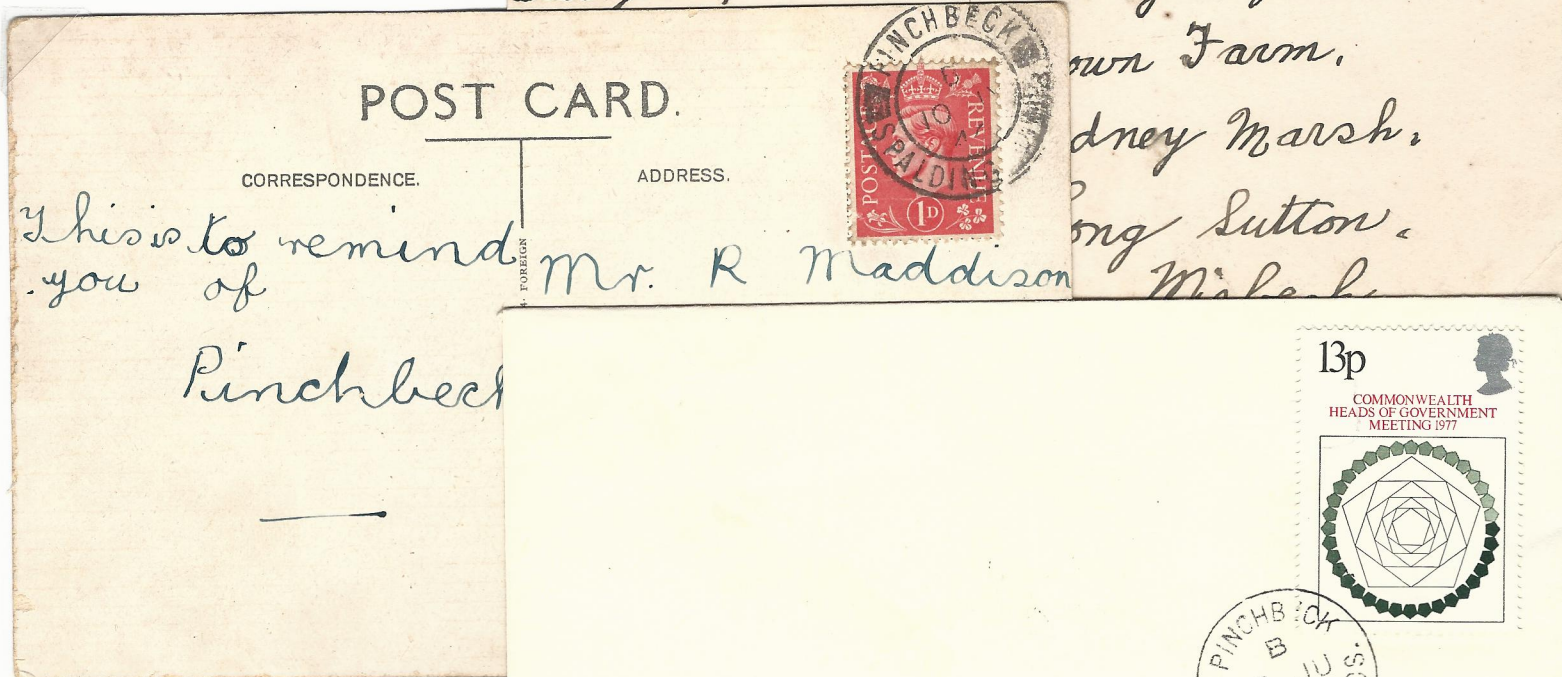 POST CARD.
CORRESPONDENCE.
ADDRESS.
This is to remind
you of
Pinchbeck
FOREIGN
Mr. R Maddison
PINCHBECK
SPALDING
5
10
POSTAGE
REVENUE
1D
own Farm,
dney Marsh.
ong Sutton.
Wisbech
13p
COMMONWEALTH
HEADS OF GOVERNMENT
MEETING 1977
PINCHBECK
B